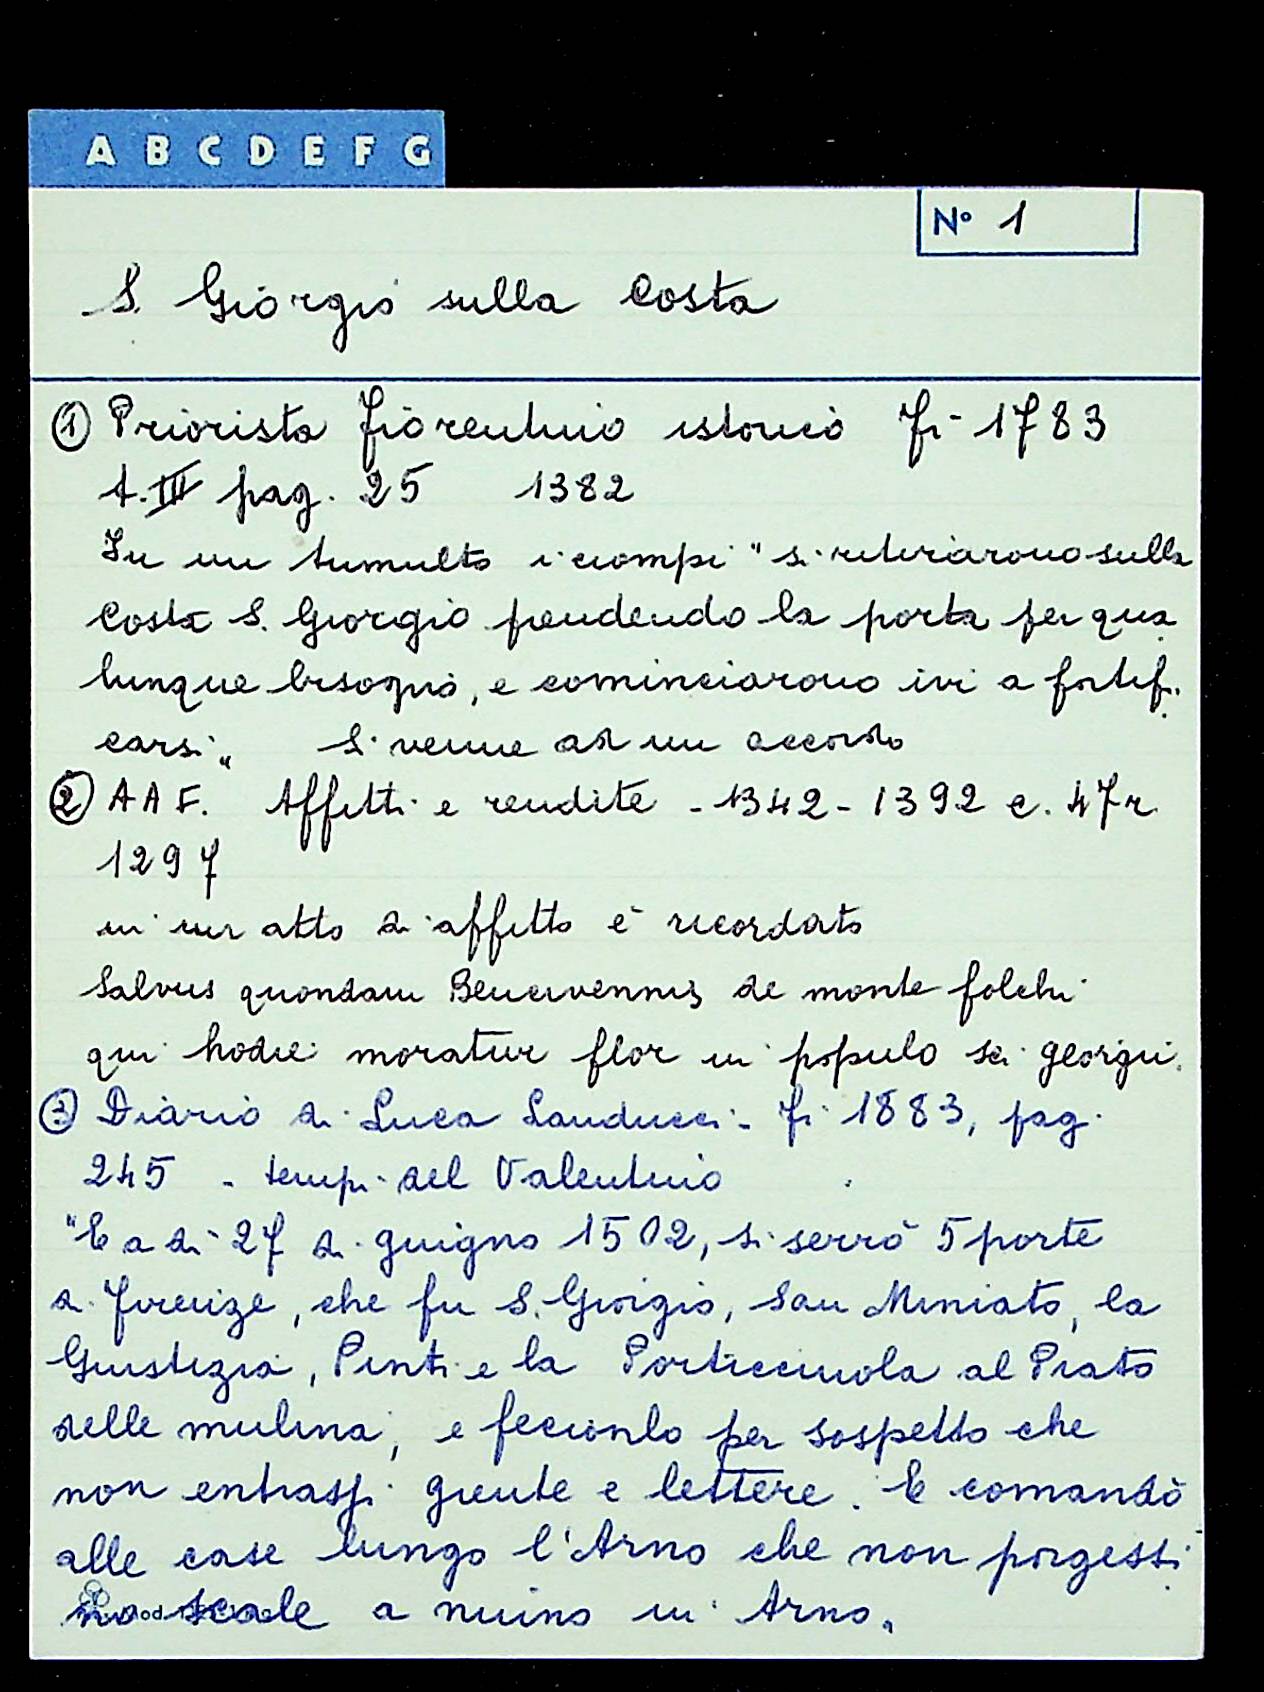 A B C D E F G
N° 1
S. Giorgio sulla Costa
① Priorista fiorentino istorico Fi- 1783
t. III pag. 25 1382
In un tumulto i ciompi "si ritirarono sulla
Costa S. Giorgio prendendo la porta per qua
lunque bisogno, e cominciarono ivi a fortifi
carsi" Si venne ad un accordo
② AAF. Affitti e rendite - 1342-1392 c. 47r.
1297
in un atto di affitto è ricordato
Salvus quondam de monte folchi
qui hodie moratur flor in populo sci georgii.
③ Diario di Luca Landucci - Fi 1883, pag.
245 - tempi del Valentino
"E a di 27 di giugno 1502, si serrò 5 porte
di Firenze, che fu S. Giorgio, San Miniato, la
Giustizia, Pinti e la Porticciuola al Prato
delle mulina, e fecionlo per sospetto che
non entrassi giente e lettere. E comandò
alle case lungo l'Arno che non porgessi
no scale a niuno in Arno.